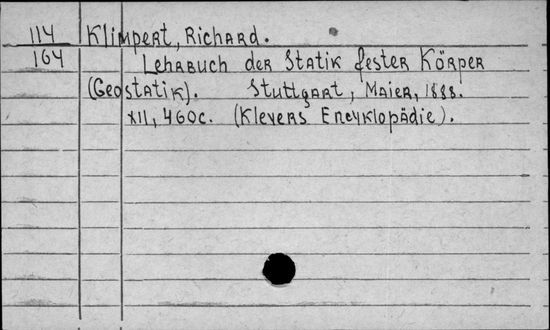 114 Klimpert, Richard.
164 Lehrbuch der Statik fester Körper
(Geostatik). Stuttgart, Maier, 1888.
XII, 460c. (Kleyers Encyklopädie).